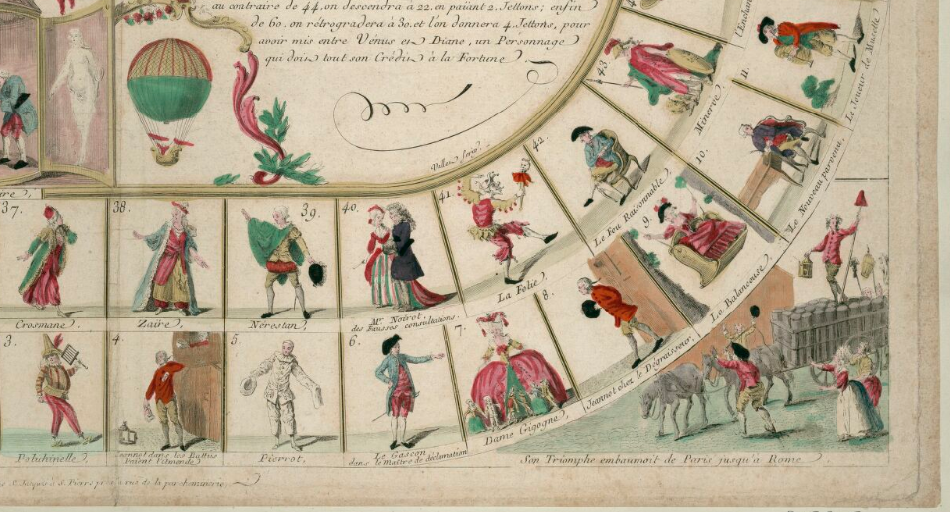 au contraire de 44, on descendra a 22. en païant 2. Jettons; enfin
de 60. on rétrogradera à 30. et l'on donnera 4. Jettons, pour
avoir mis entre Vénus et Diane, un Personnage
qui doit tout son Crédit à la Fortune.
43.
Minerve.
11.
Le Joueur de Musette
10.
Le Nouveau parvenu.
42.
Le Feu Raisonnable.
9.
Le Balanceuse.
41.
La Folie.
8.
Jeannot chez le Dégraisseur.
37.
Crosmane.
38.
Zaire.
39.
Nérestan.
40.
Mr. Notrot,
des Fausses consultations.
3.
Polichinelle.
4.
Jeannot dans les Battus
5.
Pierrot.
6.
Le Gascon
dans le Maître de déclamation
7.
Dame Gigogne.
Son Triomphe embaumoit de Paris jusqu'à Rome